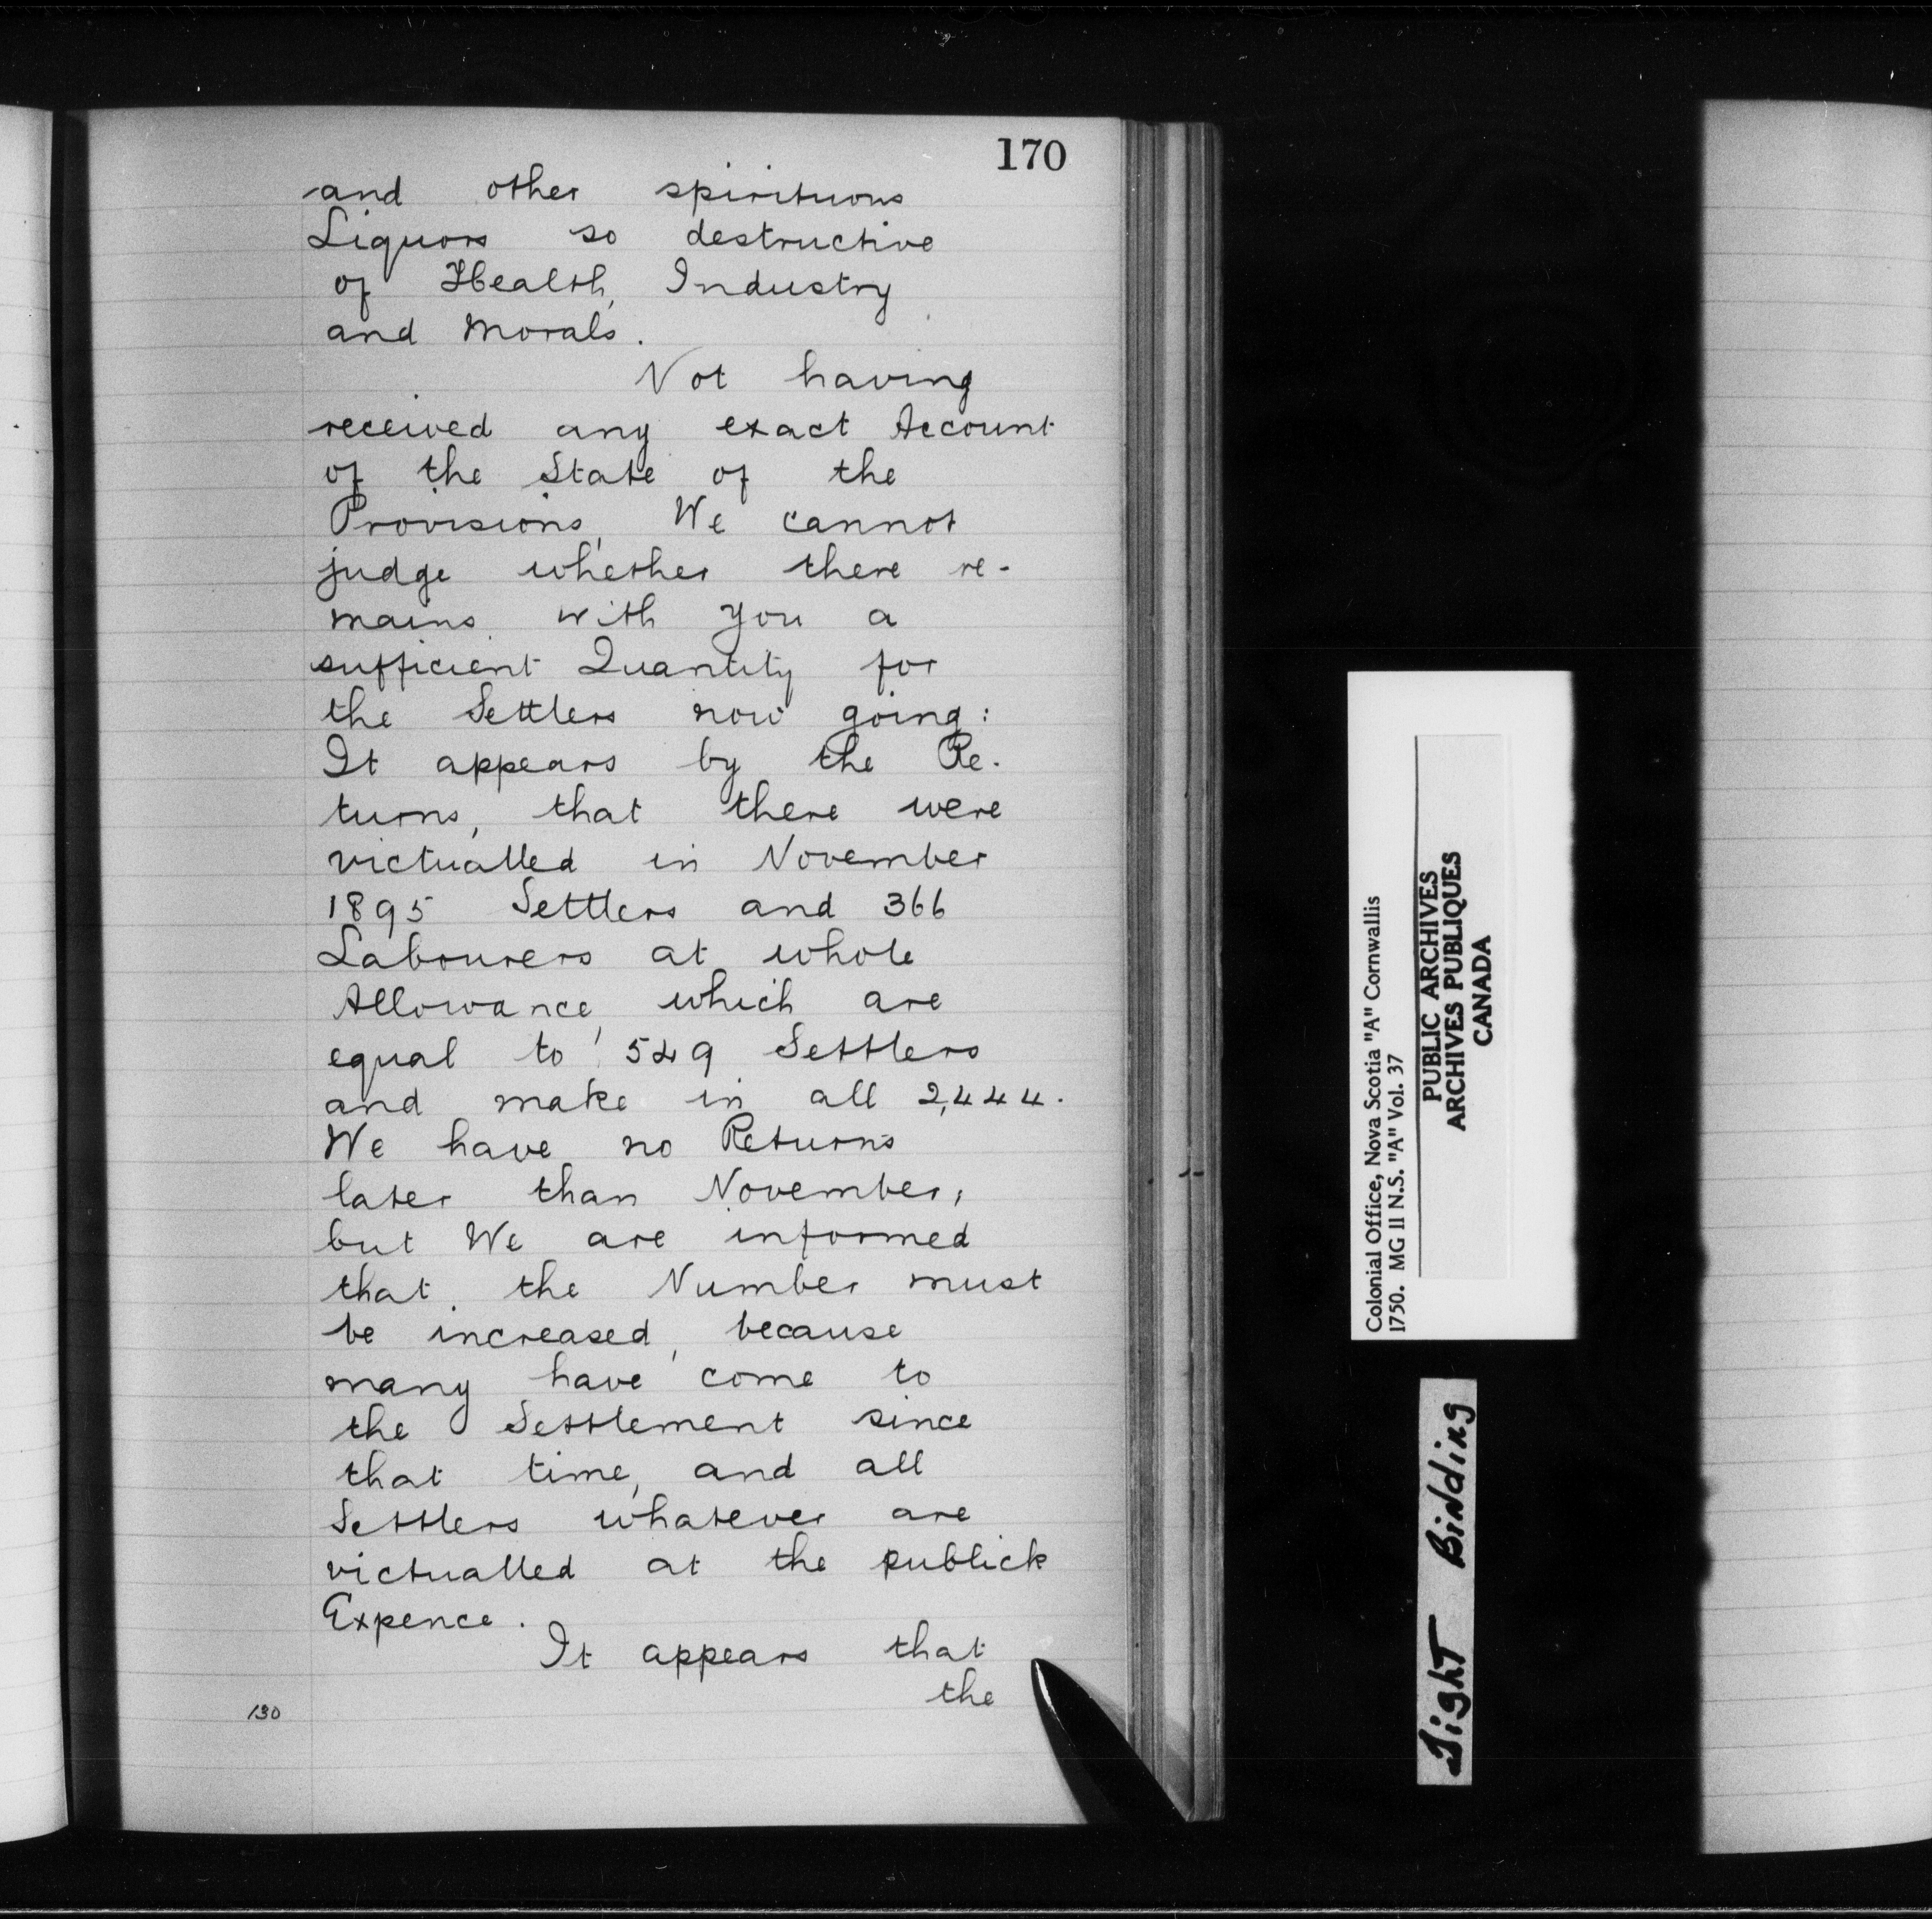 170
and other spirituous
Liquors so destructive
of Health, Industry
and Morals.
Not having
received any exact Account
of the State of the
Provisions, We cannot
judge whether there re-
mains with you a
sufficient Quantity for
the Settlers now going:
It appears by the Re-
turns, that there were
victualled in November
1895 Settlers and 366
Labourers at whole
Allowance, which are
equal to 549 Settlers
and make in all 2,444.
We have no Returns
later than November,
but We are informed
that the Number must
be increased, because
many have come to
the Settlement since
that time, and all
Settlers whatever are
victualled at the publick
Expence.
It appears that
the
130
Colonial Office, Nova Scotia "A" Cornwallis
1750. MG 11 N.S. "A" Vol. 37
PUBLIC ARCHIVES
ARCHIVES PUBLIQUES
CANADA
Tight Binding